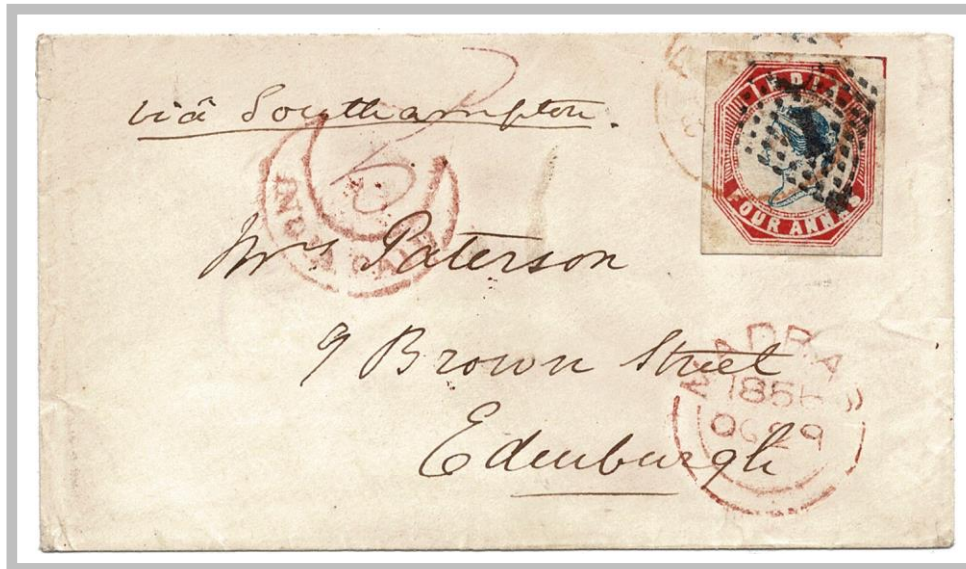 viâ Southampton.
INDIA
FOUR ANNAS
INDIA PAID
Mrs Paterson
9 Brown Street
Edinburgh
MADRAS
1856
OC 29